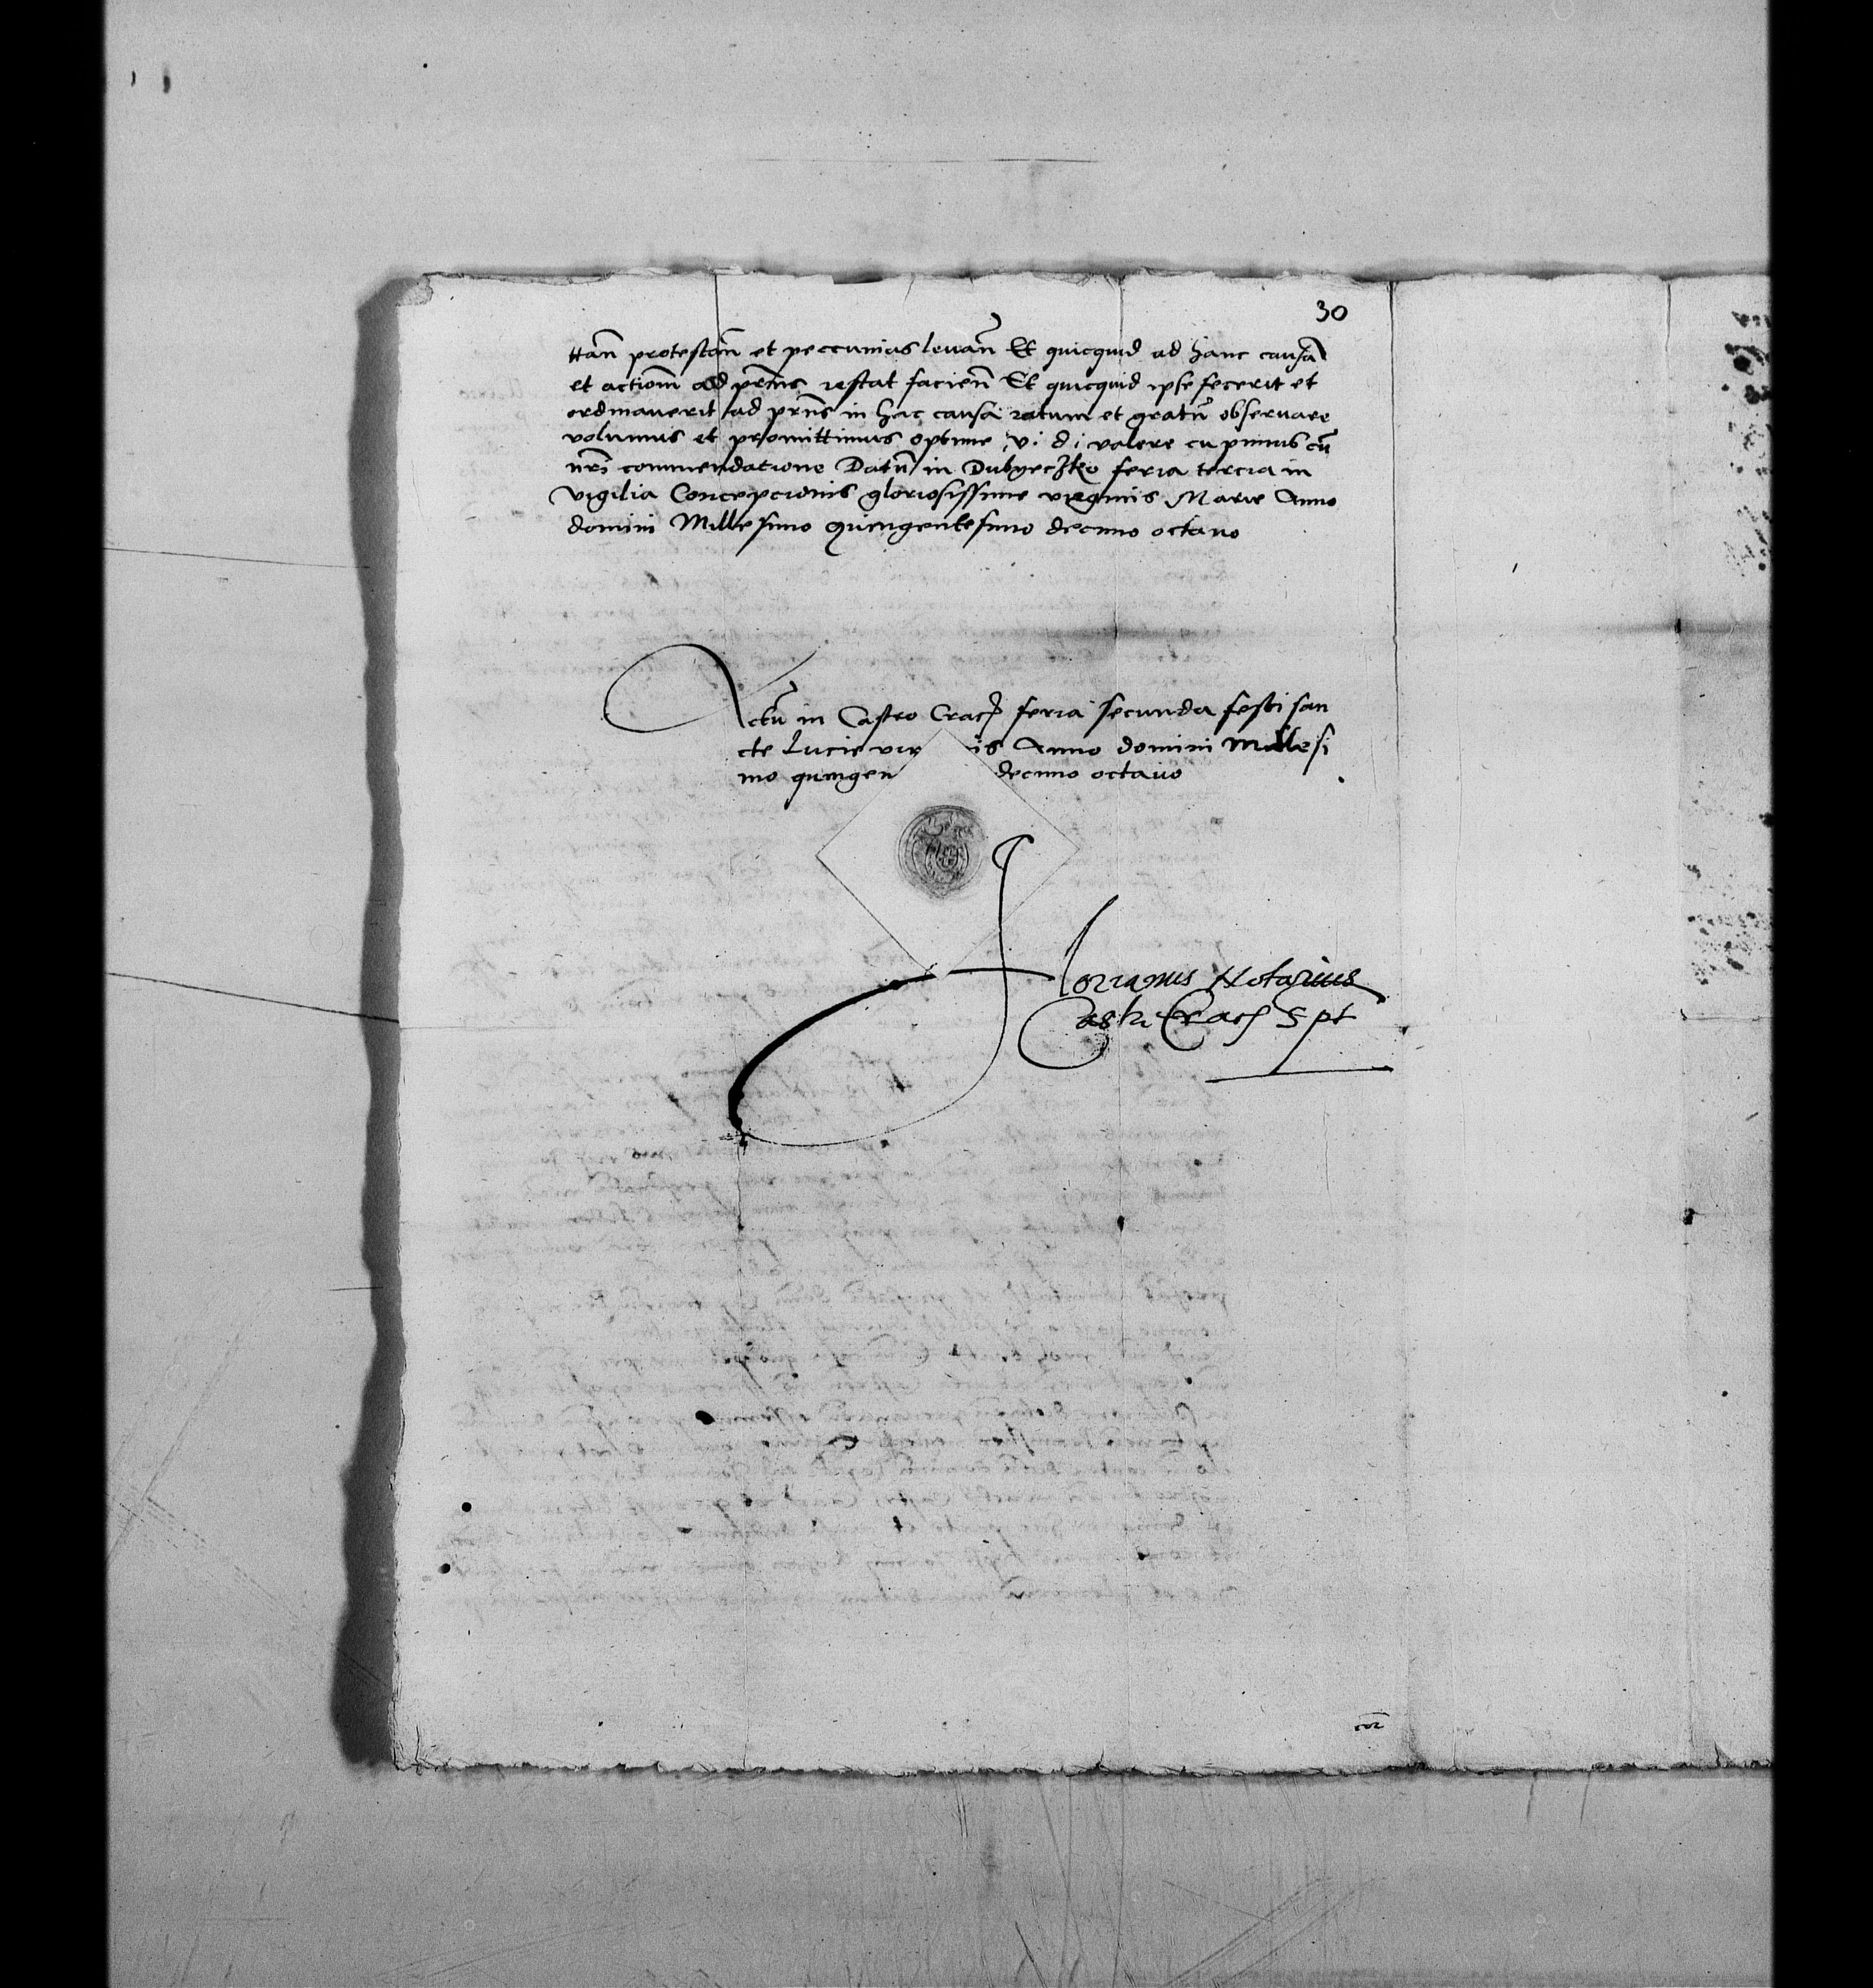 30
ttan̄ protestan̄ et peccunias levan̄ Et quicquid ad hanc causā
et actionē ad prn̄s restat facien̄ Et quicquid ipse fecerit et
ordinaverit ad prn̄s in hac causa ratum et gratū observare
volumus et promittimus optime v: d: valere cupimus cū
nrī commendatione Datū in Dubyeczko feria tercia in
vigilia Concepcionis gloriosissime virginis Marie Anno
domini Millesimo quingentesimo decimo octavo
Actū in Castro Crac feria secunda festi san
cte Lucie vir is Anno domini Millesi
mo quingen decimo octavo
Florianus Notarius
Castri Crac Spt
cor̄